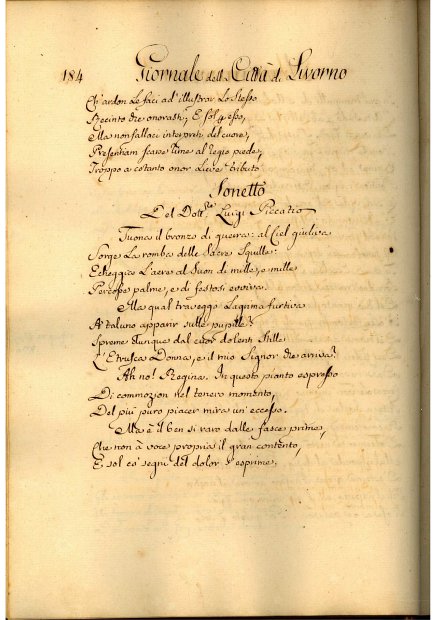 184 Giornale della Città di Livorno
Ch'ardon le faci ad'illustrar lo stesso
Recinto che onorasti; E sol q esso,
Ma non fallaci interpreti del cuore,
Presentiam scarse rime al Regio piede;
Troppo a cotanto onor lieve tributo
Sonetto
Del Dott.re Luigi Piccatio
Tuona il bronzo di guerra: al Ciel giuliva
Sorge la romba delle Sacre Squille:
Echeggia l'aere al suon di mille, e mille
Percosse palme, e di festosi evviva.
Ma qual traveggo lagrima furtiva
A' taluno apparir sulle pupille?
Spreme dunque dal cuor dolenti stille
L'Etrusca Donna, e il mio Signor che arriva?
Ah no! Regina. In questo pianto espresso
Di commozion nel tenero momento,
Del più puro piacer mira un'eccesso.
Ma è il ben sì raro dalle fasce prime,
Che non à voce propria il gran contento,
E sol co' segni del dolor s'esprime.